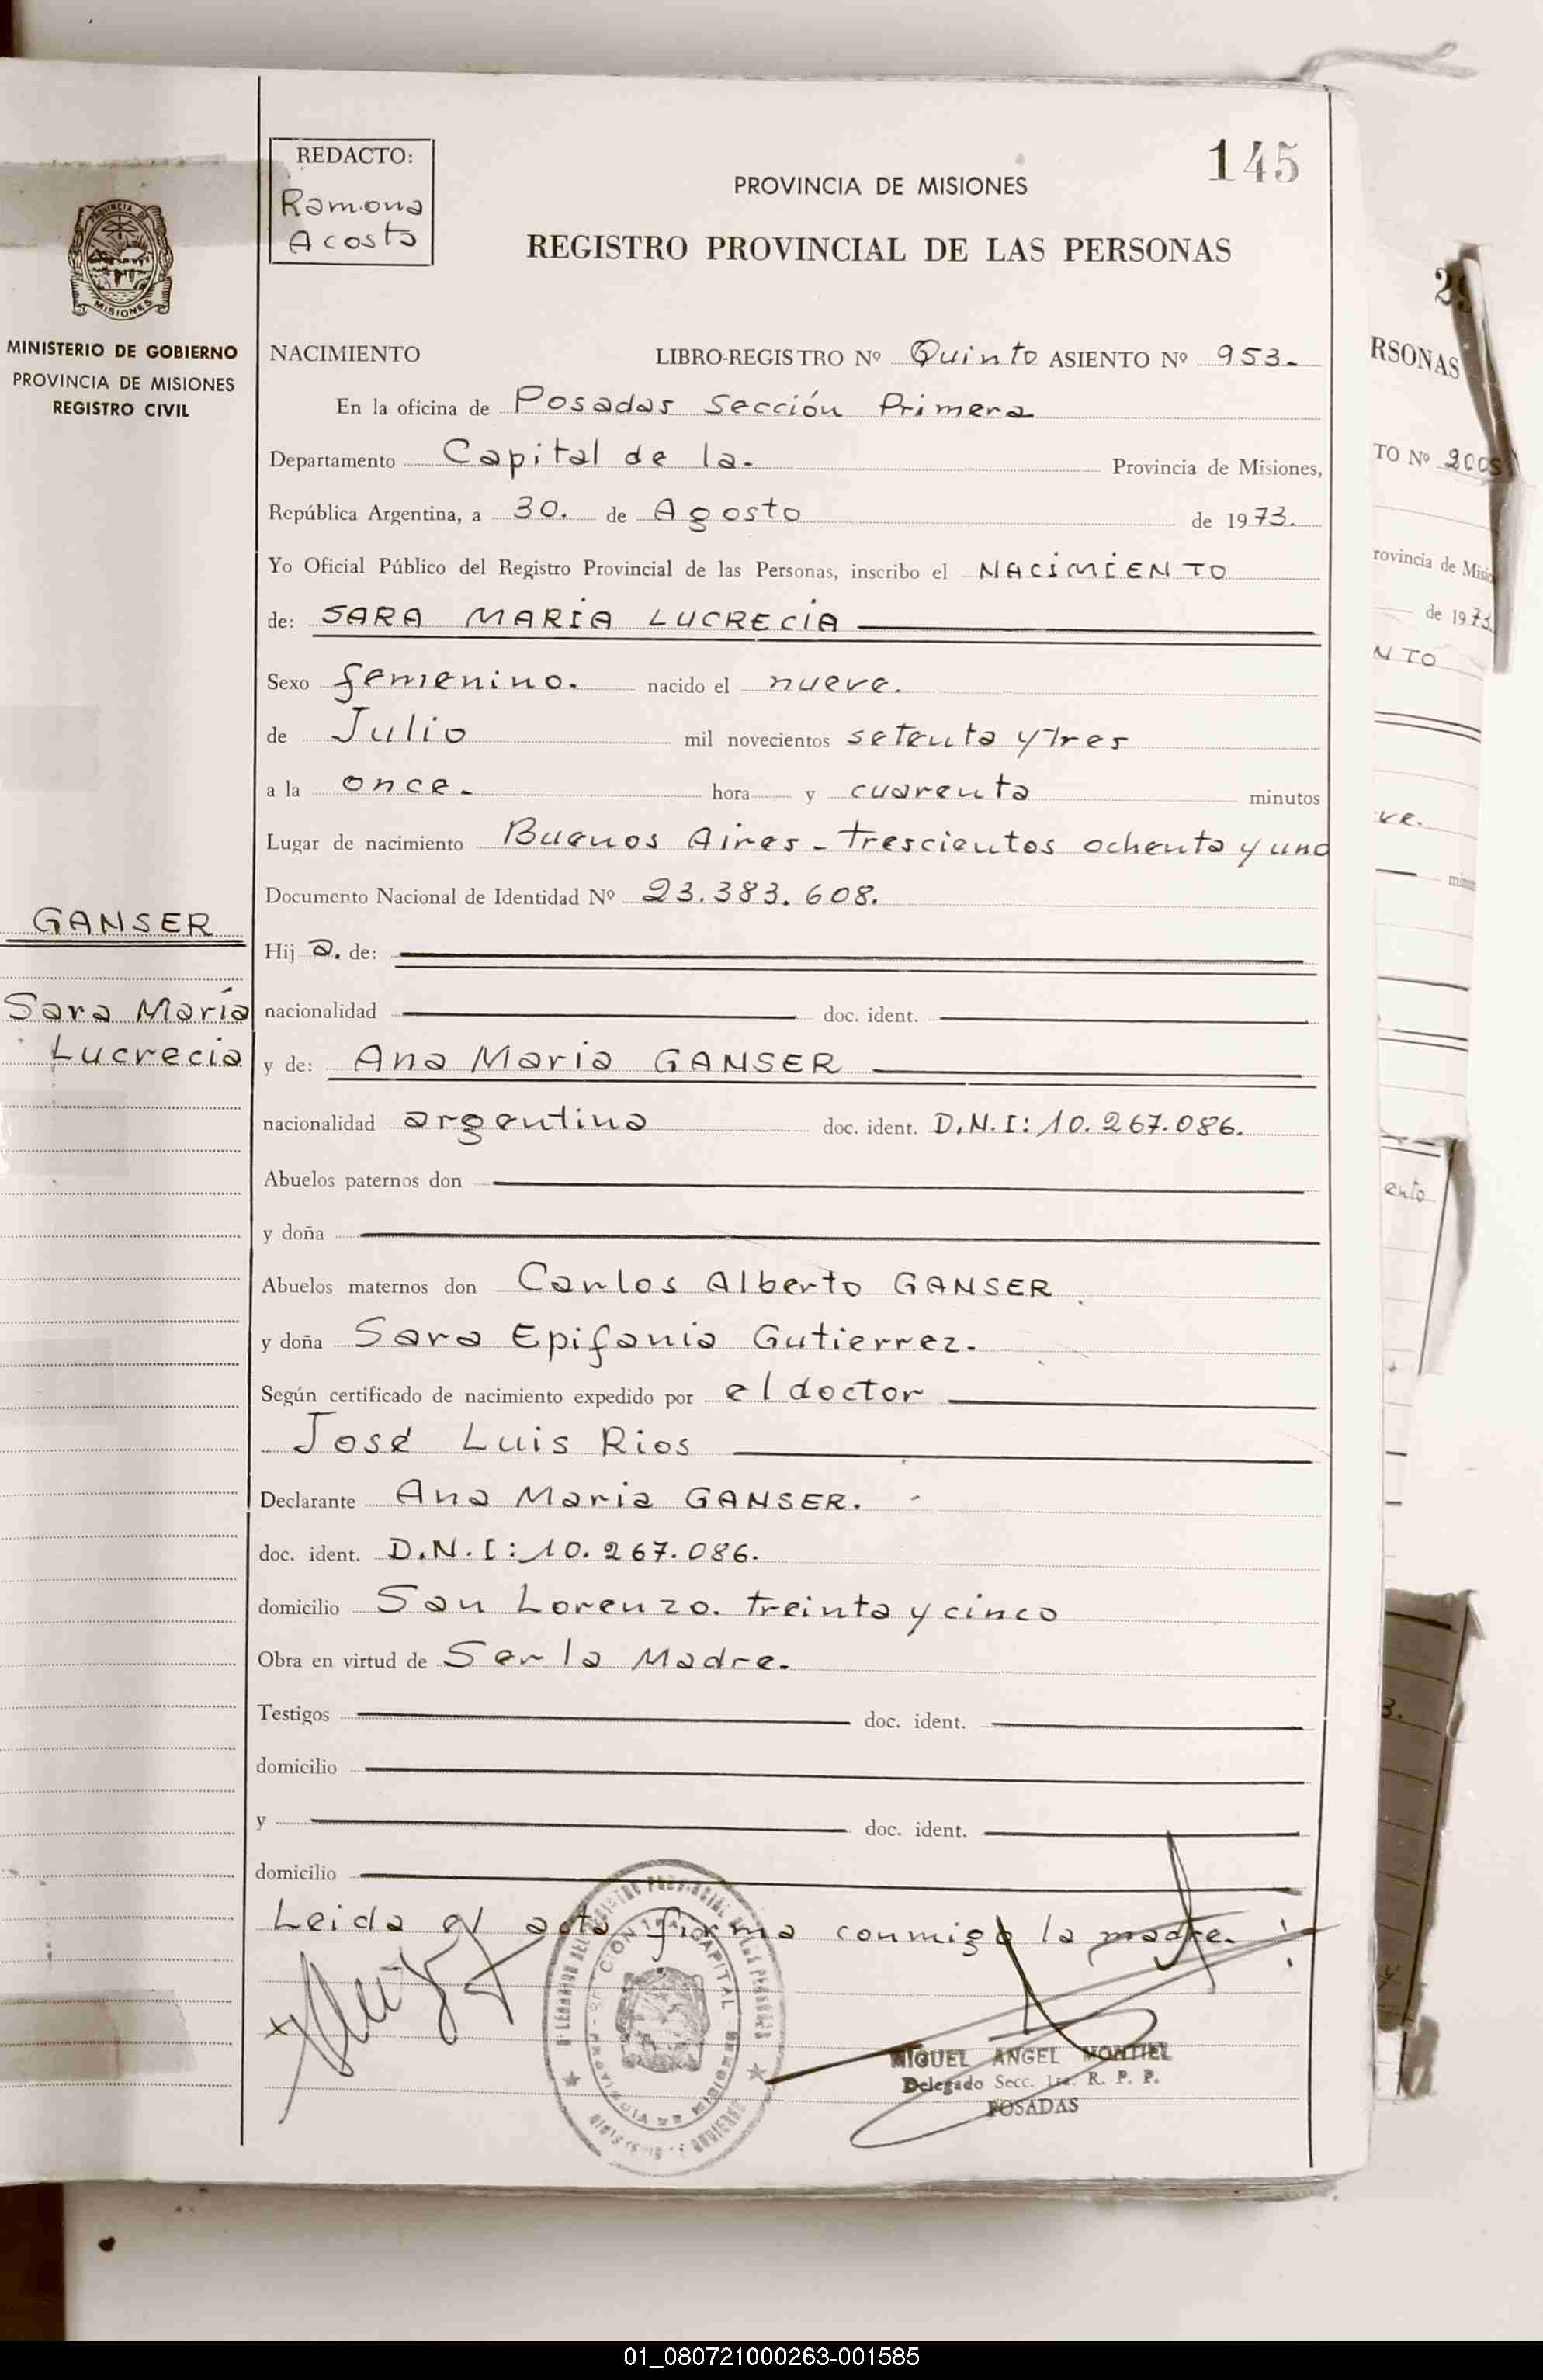 REDACTO:
Ramona
Acosta
145
PROVINCIA DE MISIONES
REGISTRO PROVINCIAL DE LAS PERSONAS
MISIONES
MINISTERIO DE GOBIERNO
PROVINCIA DE MISIONES
REGISTRO CIVIL
NACIMIENTO LIBRO-REGISTRO Nº Quinto ASIENTO Nº 953.
En la oficina de Posadas Sección Primera
Departamento Capital de la. Provincia de Misiones,
República Argentina, a 30. de Agosto de 1973.
Yo Oficial Público del Registro Provincial de las Personas, inscribo el NACIMIENTO
de: SARA MARIA LUCRECIA
Sexo femenino. nacido el nueve.
de Julio mil novecientos setenta y tres
a la once. hora y cuarenta minutos
Lugar de nacimiento Buenos Aires - trescientos ochenta y uno
Documento Nacional de Identidad Nº 23.383.608.
Hij a. de:
nacionalidad doc. ident.
y de: Ana Maria GANSER
nacionalidad argentina doc. ident. D.N.I: 10.267.086.
Abuelos paternos don
y doña
Abuelos maternos don Carlos Alberto GANSER
y doña Sara Epifania Gutierrez.
Según certificado de nacimiento expedido por el doctor
José Luis Rios
Declarante Ana Maria GANSER.
doc. ident. D.N.I: 10.267.086.
domicilio San Lorenzo. treinta y cinco
Obra en virtud de Ser la Madre.
Testigos doc. ident.
domicilio
y doc. ident.
domicilio
Leida el acta firma conmigo la madre.
MIGUEL ANGEL MONTIEL
Delegado Secc. 1ra. R. P. P.
POSADAS
GANSER
Sara María
Lucrecia
RSONAS
TO Nº
rovincia de Mis
de 1973.
NTO
ve.
ento
01_080721000263-001585